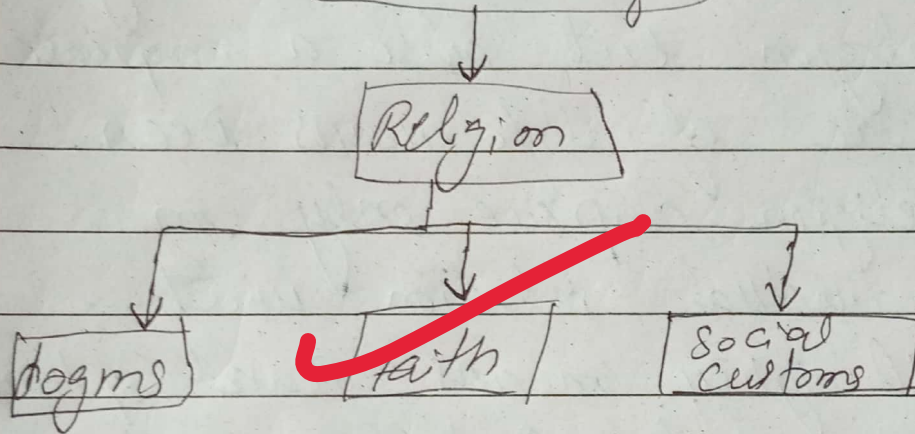 Religion
dogms
faith
social
customs